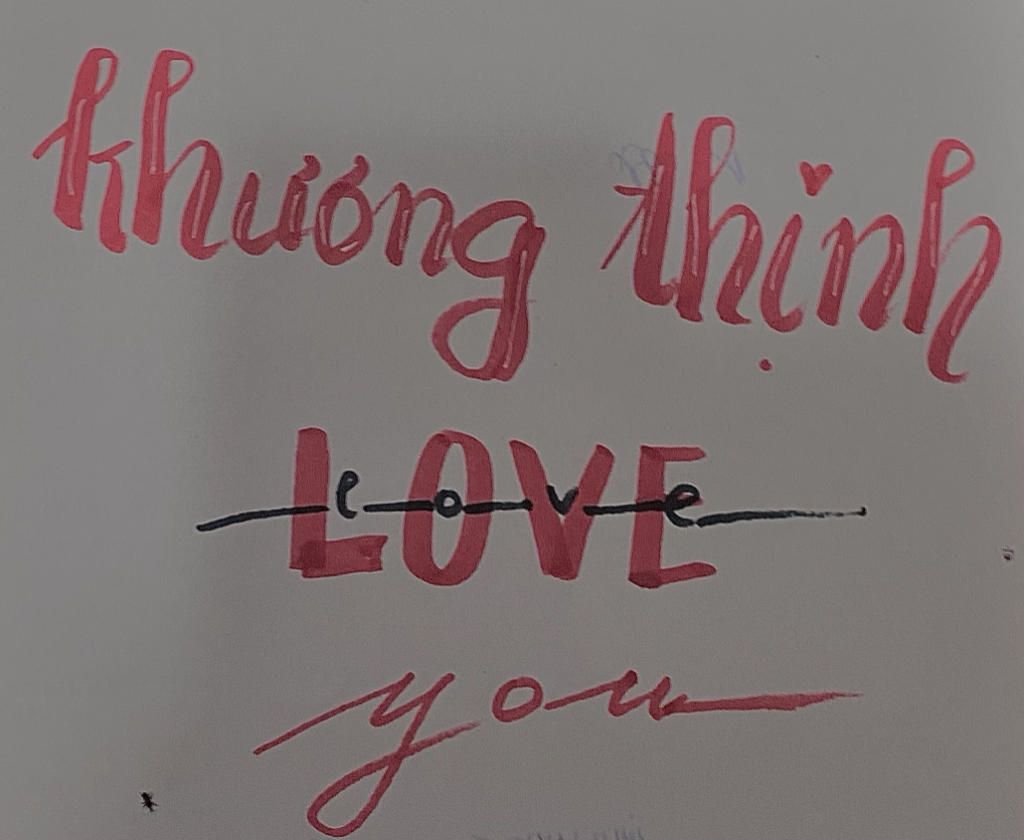 khương thịnh
LOVE
love
you